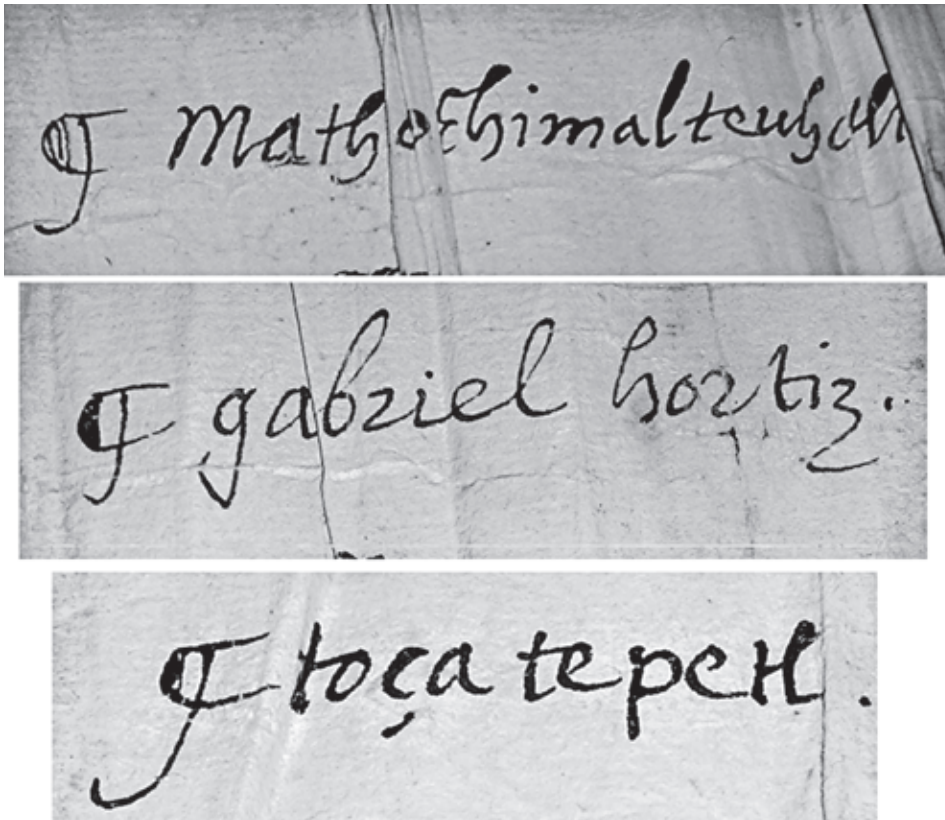 ¶ Matheo chimalteuhctli
¶ gabriel hortiz.
¶ toça tepetl.